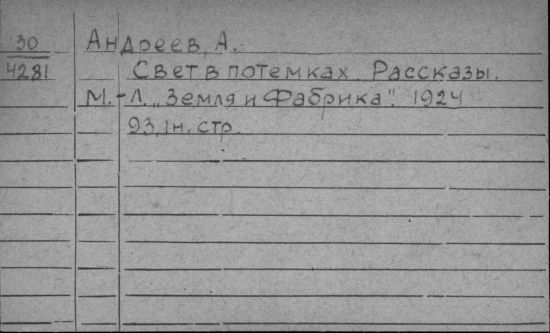 30 Андреев, А.
4281 Свет в потемках. Рассказы.
М.-Л. „Земля и Фабрика". 1924
93, 1 н. стр.